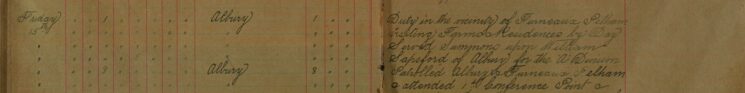 Friday " 1 " " " " " Albury 1 " " Duty in the vicinity of Furneaux Pelham
15 " " " " " " " " " " " Visiting Farms & Residences by Day
" " " " " " " " " " " Served Summons upon William
" " " " " " " " " " " Sapsford of Albury for the
" " 8 " " " " " Albury 8 " " Patrolled Albury & Furneaux Pelham
" " " " " " " " " " " & attended 1 Conference Point